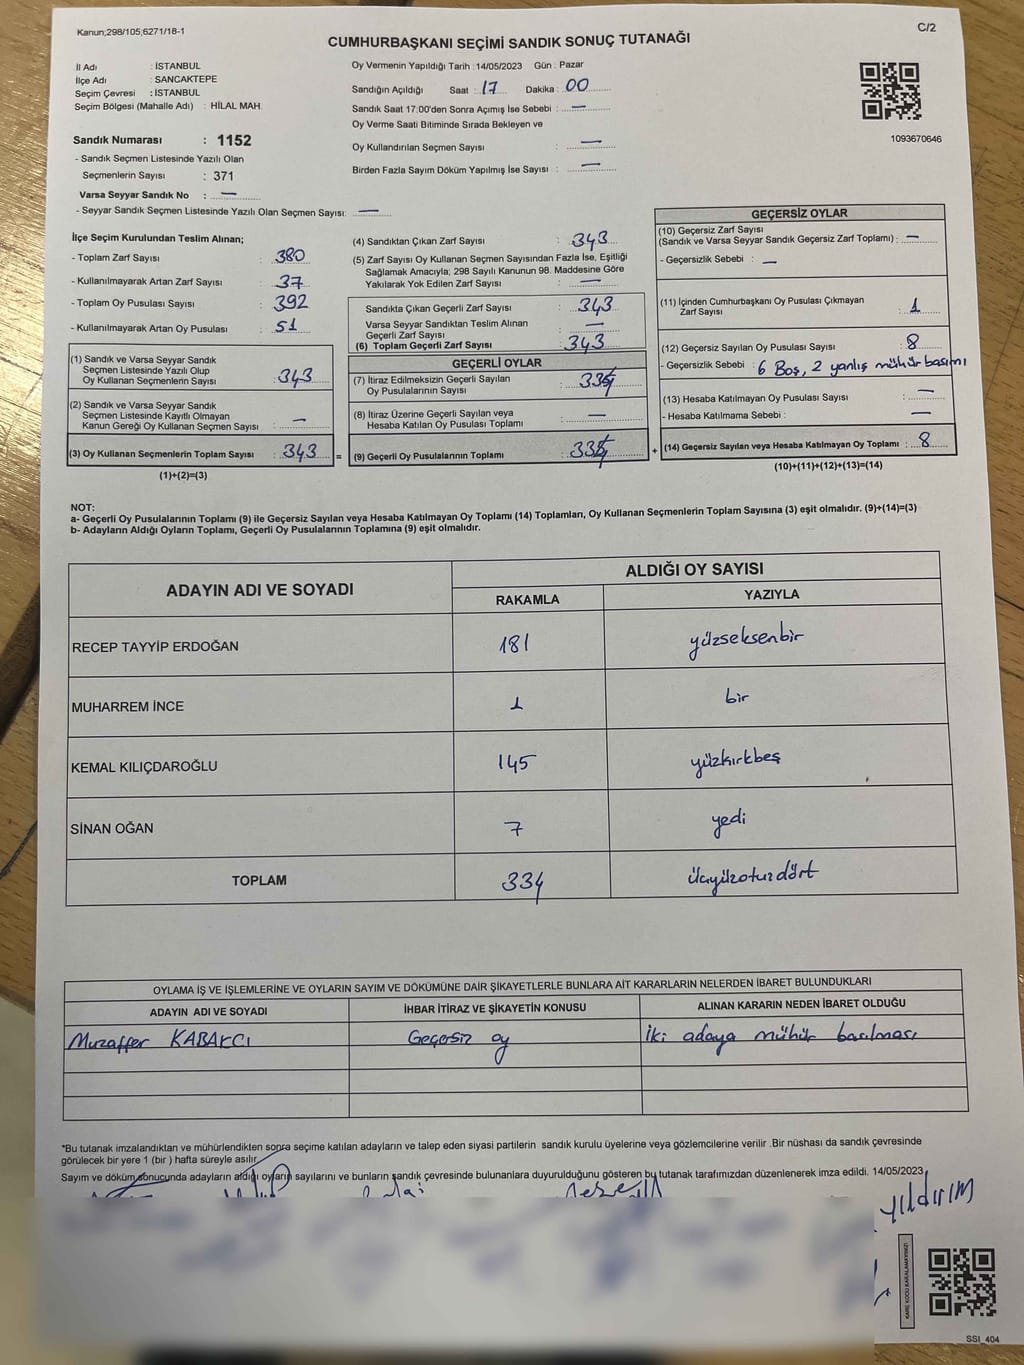 Kanun;298/105;6271/18-1
C/2
CUMHURBAŞKANI SEÇİMİ SANDIK SONUÇ TUTANAĞI
İl Adı : İSTANBUL
İlçe Adı : SANCAKTEPE
Seçim Çevresi : İSTANBUL
Seçim Bölgesi (Mahalle Adı) : HİLAL MAH.
Sandık Numarası : 1152
- Sandık Seçmen Listesinde Yazılı Olan
Seçmenlerin Sayısı : 371
Varsa Seyyar Sandık No : —
- Seyyar Sandık Seçmen Listesinde Yazılı Olan Seçmen Sayısı: —
Oy Vermenin Yapıldığı Tarih : 14/05/2023 Gün : Pazar
Sandığın Açıldığı Saat : 17 Dakika : 00
Sandık Saat 17:00'den Sonra Açımış İse Sebebi : —
Oy Verme Saati Bitiminde Sırada Bekleyen ve
Oy Kullandırılan Seçmen Sayısı : —
Birden Fazla Sayım Döküm Yapılmış İse Sayısı : —
1093670646
İlçe Seçim Kurulundan Teslim Alınan;
- Toplam Zarf Sayısı : 380
- Kullanılmayarak Artan Zarf Sayısı : 37
- Toplam Oy Pusulası Sayısı : 392
- Kullanılmayarak Artan Oy Pusulası : 51
(1) Sandık ve Varsa Seyyar Sandık
Seçmen Listesinde Yazılı Olup
Oy Kullanan Seçmenlerin Sayısı : 343
(2) Sandık ve Varsa Seyyar Sandık
Seçmen Listesinde Kayıtlı Olmayan
Kanun Gereği Oy Kullanan Seçmen Sayısı : —
(3) Oy Kullanan Seçmenlerin Toplam Sayısı : 343 =
(1)+(2)=(3)
(4) Sandıktan Çıkan Zarf Sayısı : 343
(5) Zarf Sayısı Oy Kullanan Seçmen Sayısından Fazla İse, Eşitliği
Sağlamak Amacıyla; 298 Sayılı Kanunun 98. Maddesine Göre
Yakılarak Yok Edilen Zarf Sayısı : —
Sandıkta Çıkan Geçerli Zarf Sayısı : 343
Varsa Seyyar Sandıktan Teslim Alınan
Geçerli Zarf Sayısı : —
(6) Toplam Geçerli Zarf Sayısı : 343
GEÇERLİ OYLAR
(7) İtiraz Edilmeksizin Geçerli Sayılan
Oy Pusulalarının Sayısı : 334
(8) İtiraz Üzerine Geçerli Sayılan veya
Hesaba Katılan Oy Pusulası Toplamı : —
(9) Geçerli Oy Pusulalarının Toplamı : 334 +
GEÇERSİZ OYLAR
(10) Geçersiz Zarf Sayısı
(Sandık ve Varsa Seyyar Sandık Geçersiz Zarf Toplamı) : —
- Geçersizlik Sebebi : —
(11) İçinden Cumhurbaşkanı Oy Pusulası Çıkmayan
Zarf Sayısı : 1
(12) Geçersiz Sayılan Oy Pusulası Sayısı : 8
- Geçersizlik Sebebi : 6 Boş, 2 yanlış mühür basımı
(13) Hesaba Katılmayan Oy Pusulası Sayısı : —
- Hesaba Katılmama Sebebi : —
(14) Geçersiz Sayılan veya Hesaba Katılmayan Oy Toplamı : 8
(10)+(11)+(12)+(13)=(14)
NOT:
a- Geçerli Oy Pusulalarının Toplamı (9) ile Geçersiz Sayılan veya Hesaba Katılmayan Oy Toplamı (14) Toplamları, Oy Kullanan Seçmenlerin Toplam Sayısına (3) eşit olmalıdır. (9)+(14)=(3)
b- Adayların Aldığı Oyların Toplamı, Geçerli Oy Pusulalarının Toplamına (9) eşit olmalıdır.
ADAYIN ADI VE SOYADI
ALDIĞI OY SAYISI
RAKAMLA YAZIYLA
RECEP TAYYİP ERDOĞAN 181 yüzseksenbir
MUHARREM İNCE 1 bir
KEMAL KILIÇDAROĞLU 145 yüzkırkbeş
SİNAN OĞAN 7 yedi
TOPLAM 334 üçyüzotuzdört
OYLAMA İŞ VE İŞLEMLERİNE VE OYLARIN SAYIM VE DÖKÜMÜNE DAİR ŞİKAYETLERLE BUNLARA AİT KARARLARIN NELERDEN İBARET BULUNDUKLARI
ADAYIN ADI VE SOYADI İHBAR İTİRAZ VE ŞİKAYETİN KONUSU ALINAN KARARIN NEDEN İBARET OLDUĞU
Muzaffer KABAKCI Geçersiz oy İki adaya mühür basılması
*Bu tutanak imzalandıktan ve mühürlendikten sonra seçime katılan adayların ve talep eden siyasi partilerin sandık kurulu üyelerine veya gözlemcilerine verilir .Bir nüshası da sandık çevresinde
görülecek bir yere 1 (bir ) hafta süreyle asılır.
Sayım ve döküm sonucunda adayların aldığı oyların sayılarını ve bunların sandık çevresinde bulunanlara duyurulduğunu gösteren bu tutanak tarafımızdan düzenlenerek imza edildi. 14/05/2023
YILDIRIM
KARE KODU KARALAMAYINIZ!
SSI_404